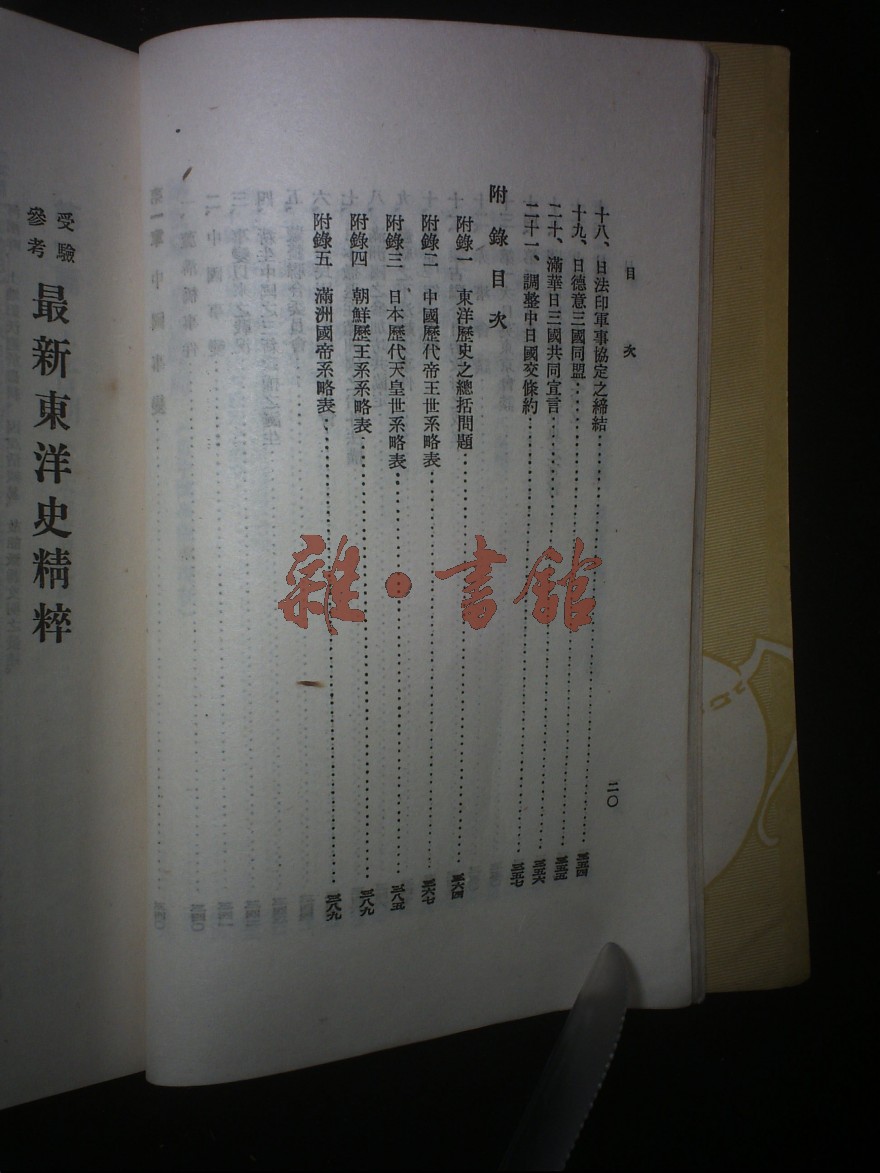 目次
十八、日法印軍事協定之締結……三五四
十九、日德意三國同盟……三五五
二十、滿華日三國共同宣言……三五六
二十一、調整中日國交條約……三五七
附錄目次
附錄一 東洋歷史之總括問題……三六四
附錄二 中國歷代帝王世系略表……三六七
附錄三 日本歷代天皇世系略表……三八五
附錄四 朝鮮歷王系系略表……三八九
附錄五 滿洲國帝系略表……三八九
二〇
受驗參考 最新東洋史精粹
雜·書館